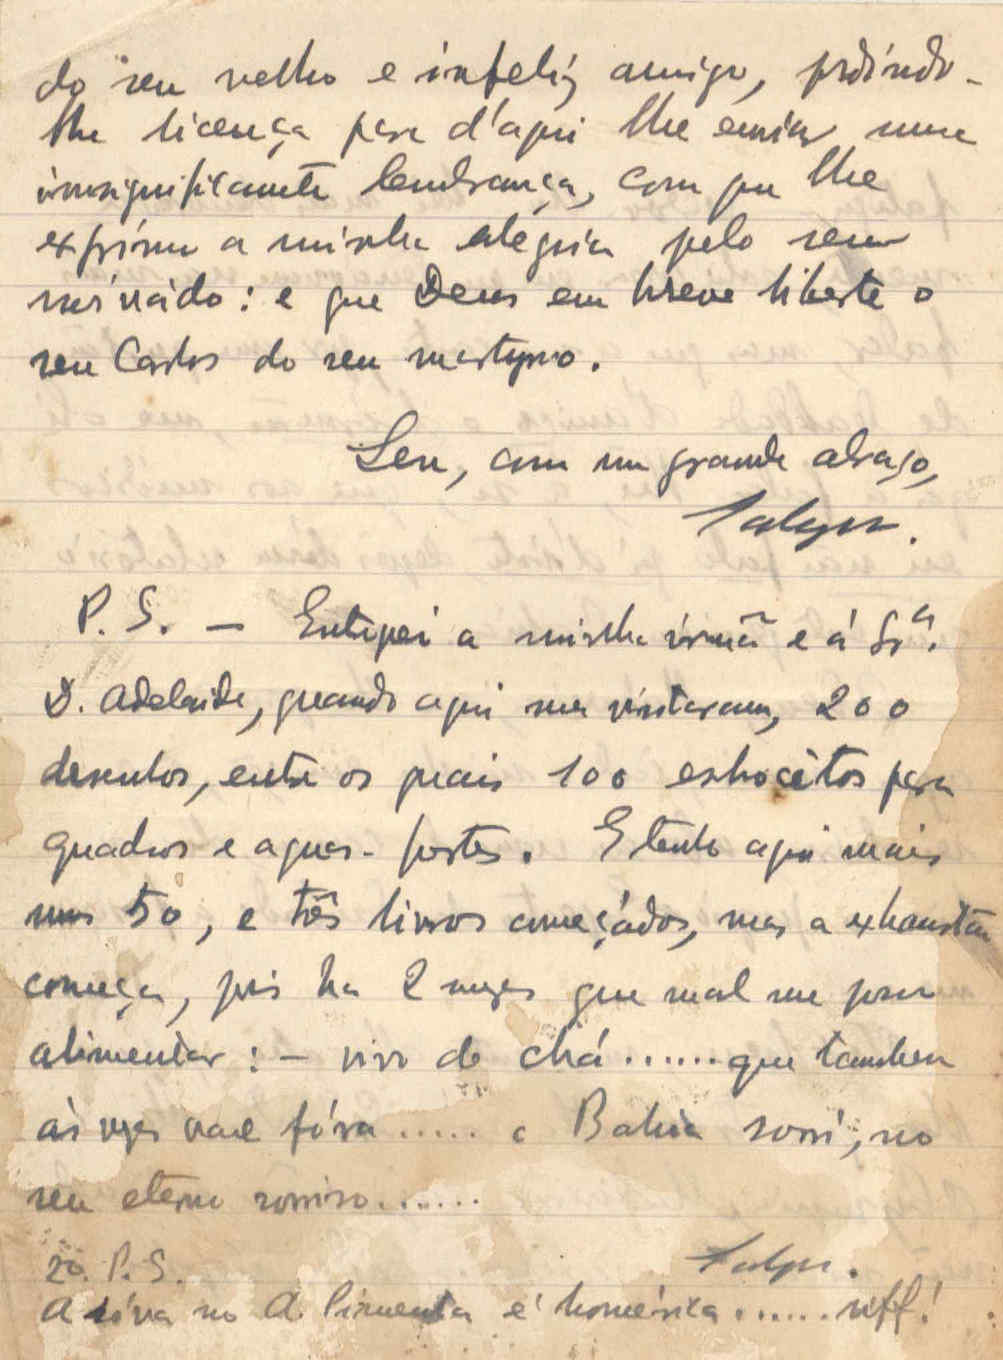 do seu velho e infeliz amigo, pedindo-
lhe licença para d'aqui lhe enviar uma
insignificante lembrança, com que lhe
exprimo a minha alegria pelo seu
nascido: e que Deus em breve liberte o
seu Carlos do seu martyrio.
Seu, com um grande abraço,
P. S. — Entreguei a minha irmã e á Srª.
D. Adelaide, quando aqui me visitaram, 200
desenhos, entre os quais 100 esbocêtos para
quadros e aguas-fortes. E tenho aqui mais
uns 50, e três livros começádos, mas a exhaustão
começa, pois ha 2 mezes que mal me posso
alimentar: — vivo de chá ...... que tambem
ás vezes vae fóra ..... e Bahia sorri, no
seu eterno sorriso ......
2º. P. S.
A sóva no A. Pimenta é homérica ...... uff!